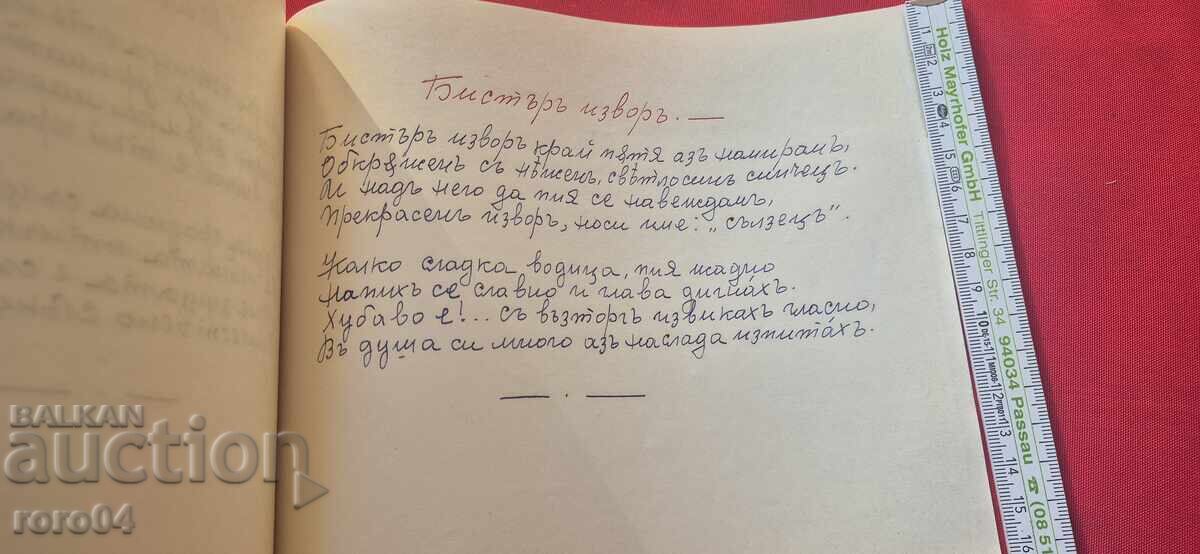 Бистъръ изворъ. —
Бистъръ изворъ край пѫтя азъ намирамъ,
Обкрѫженъ съ нѣженъ, свѣтлосинъ синчецъ.
И надъ него да пия се навеждамъ,
Прекрасенъ изворъ, носи име: „сълзецъ".
Колко сладка водица, пия жадно
Напихъ се славно и глава дигнáхъ.
Хубаво е!... съ възторгъ извикахъ гласно,
Въ душа си много азъ наслада изпитáхъ.
— . —
BALKAN
auction
roro04
Holz Mayrhofer GmbH Tittlinger Str. 34 94034 Passau ☎ (08 51
1 2 3 4 5 6 7 8 9 10 11 12 13 14 15 16